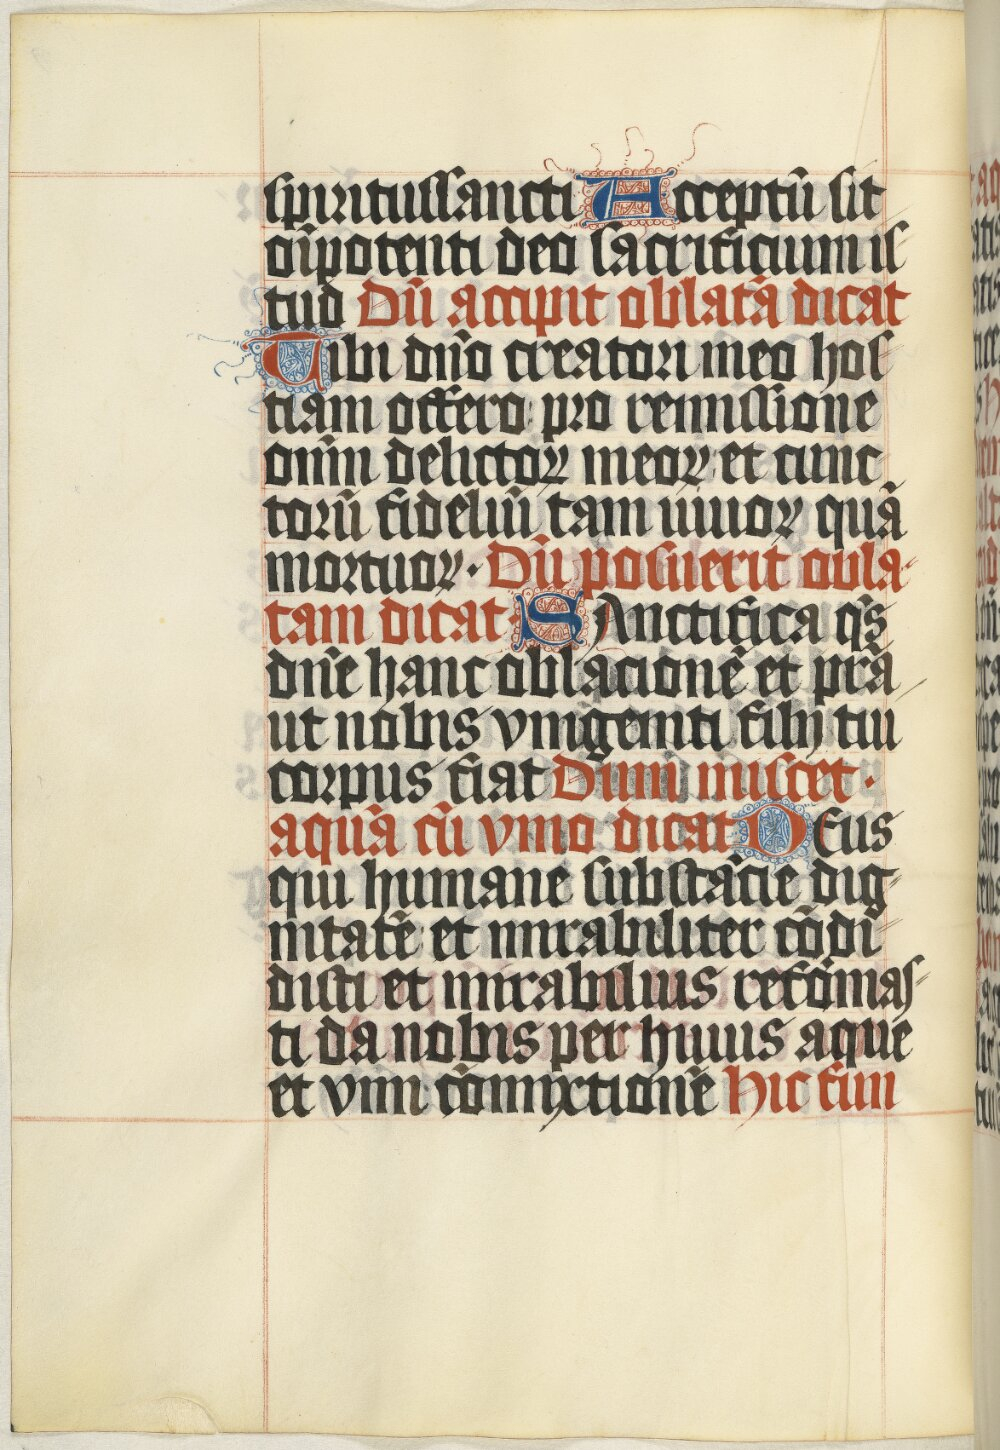 spiritussancti Acceptū sit
oīpotenti deo sacrificium is
tud Dū accipit oblatā dicat
Tibi dn̄o creatori meo hos
tiam offero pro remissione
om̄n delictoꝝ meoꝝ et cunc
torū fideliū tam uiuoꝝ quā
mortuoꝝ· Dū posuerit obla
tam dicat SAnctifica qs̄
dn̄e hanc oblacionē et p̄rā
ut nobis vnigeniti filij tui
corpus fiat Dum miscet·
aquā cū vino dicat DEus
qui humane substācie dig
nitatē et mirabiliter cōdi
disti et mirabilius refōmas
ti da nobis per huius aque
et vini cōmixtionē Hic fun